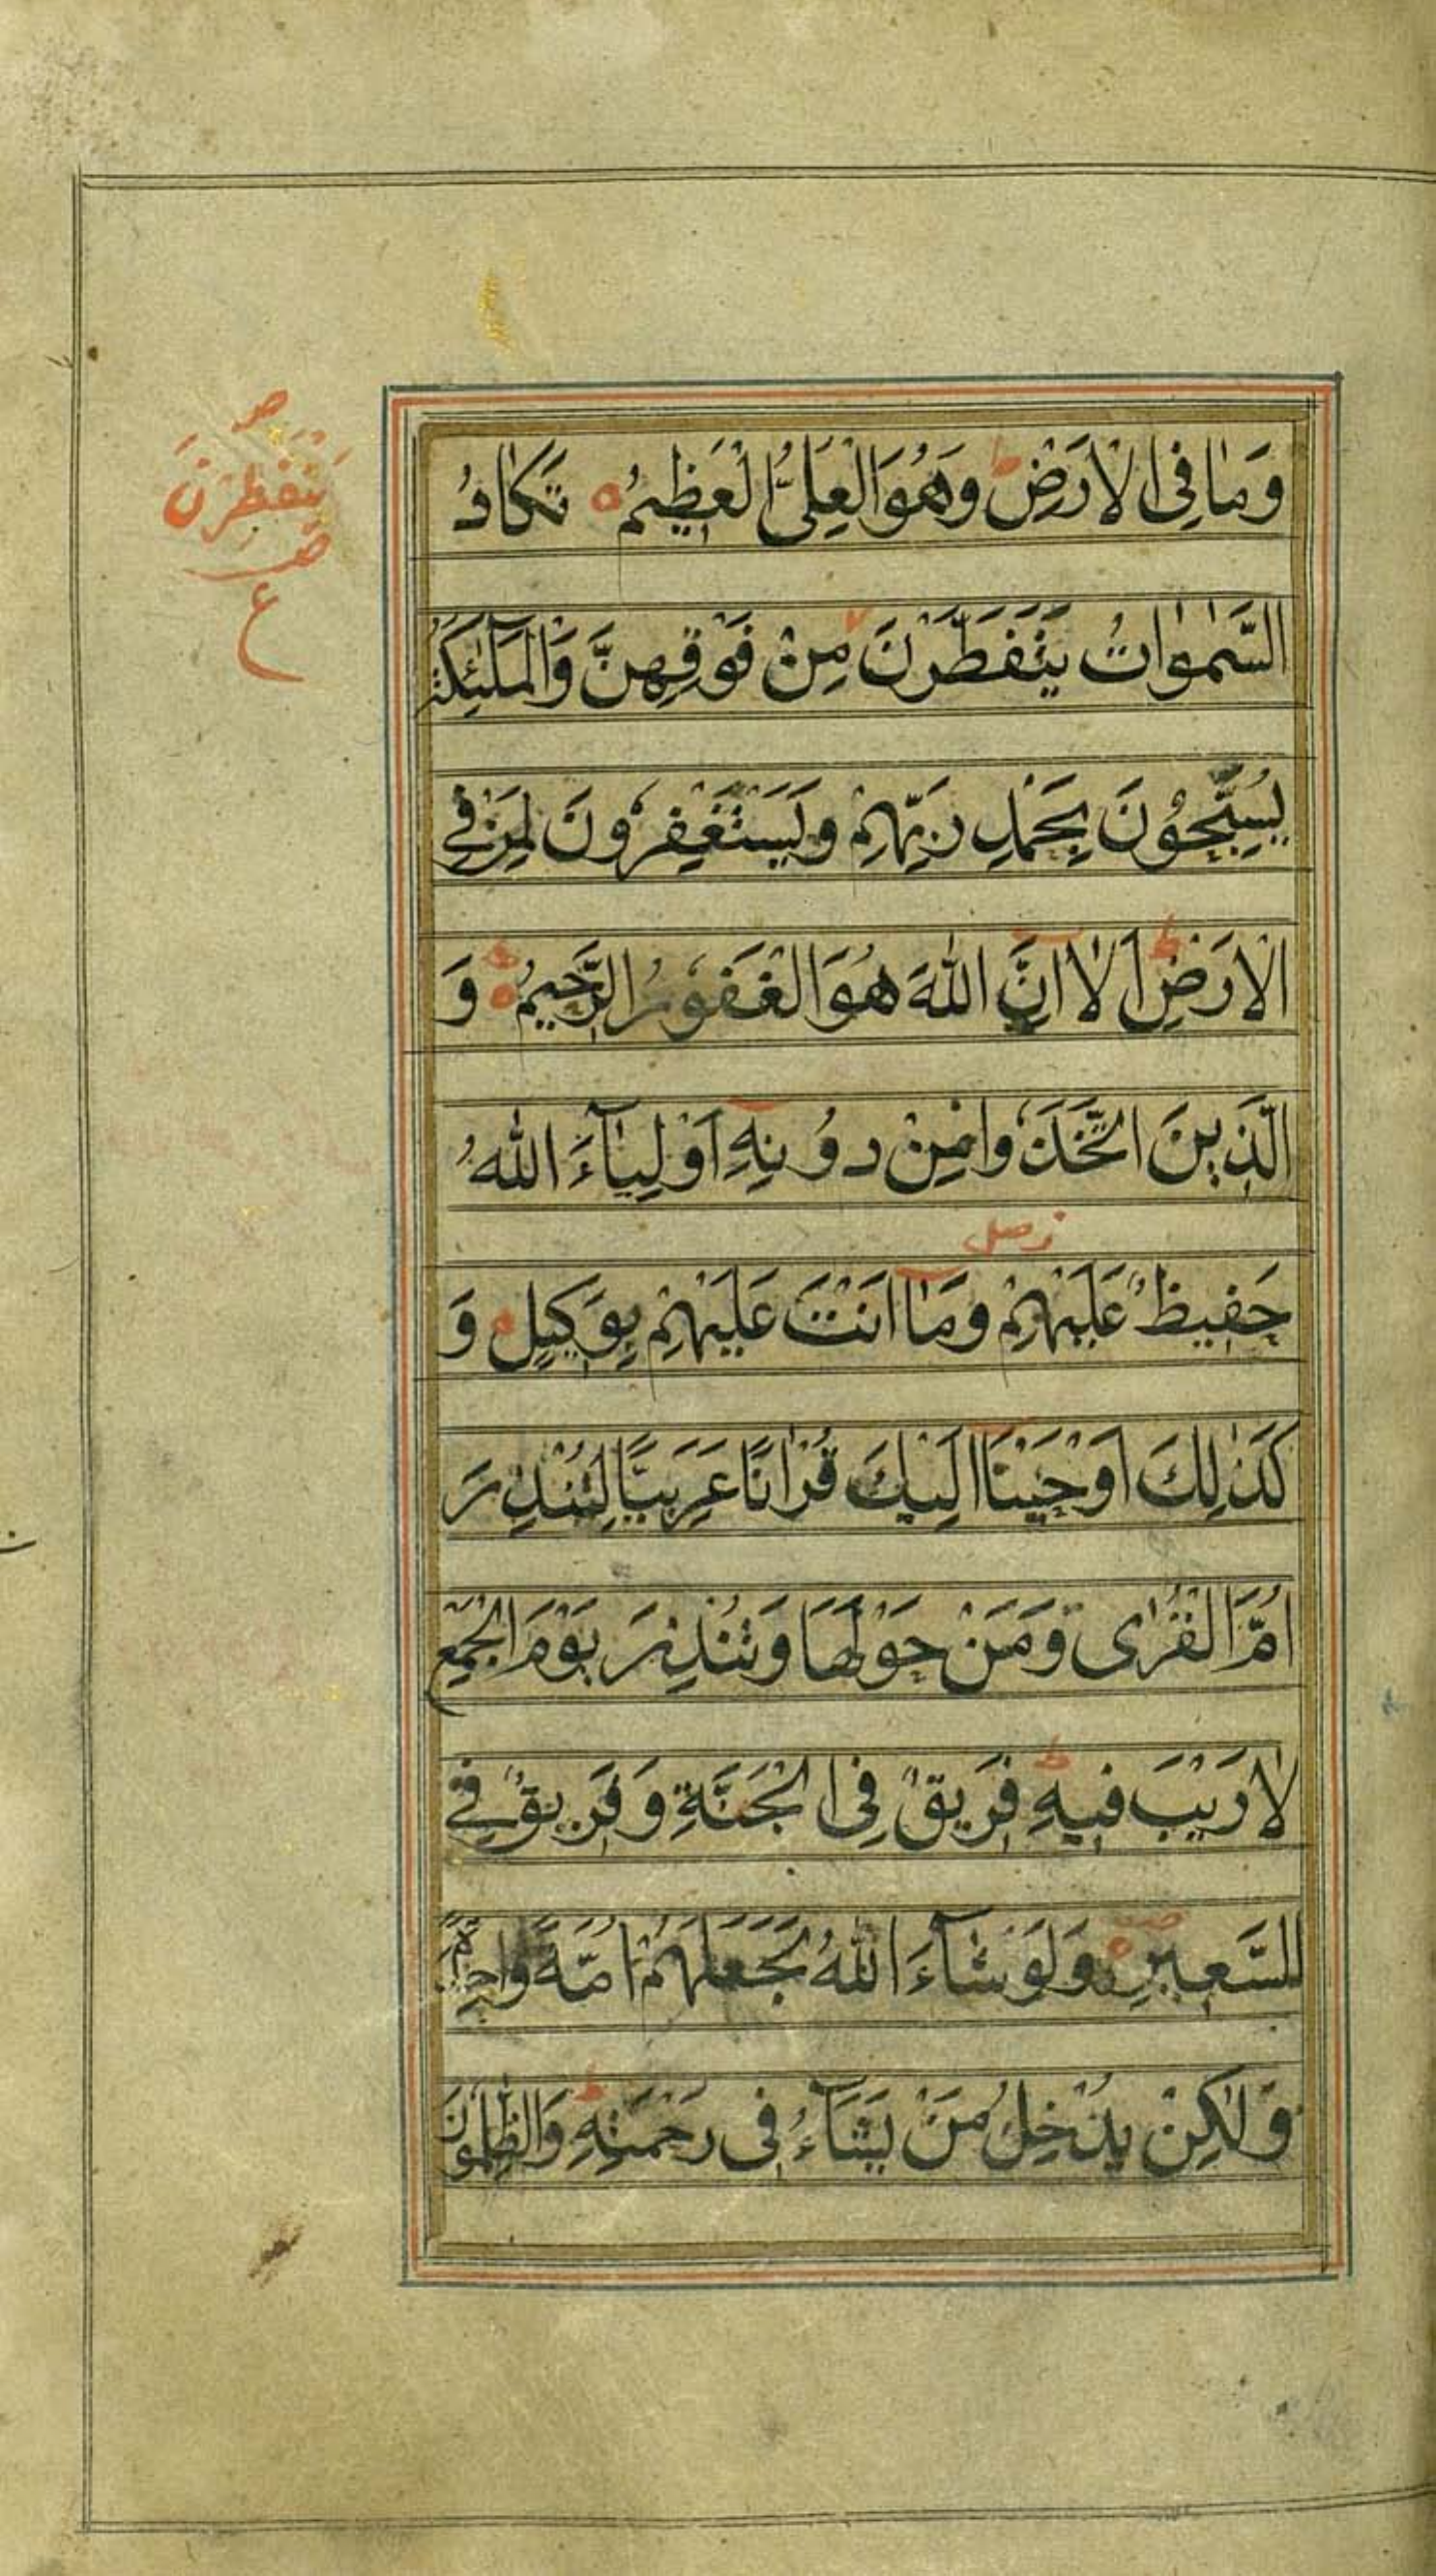 وَمَا فِی الْاَرْضِ ط وَهُوَ الْعَلِیُّ الْعَظِیْمُ ه تَكَادُ
السَّمٰوَاتُ یَتَفَطَّرْنَ مِنْ فَوْقِهِنَّ وَالْمَلٰٓئِكَةُ
یُسَبِّحُوْنَ بِحَمْدِ رَبِّهِمْ وَیَسْتَغْفِرُوْنَ لِمَنْ فِی
الْاَرْضِ ط اَلَآ اِنَّ اللّٰهَ هُوَ الْغَفُوْرُ الرَّحِیْمُ ه وَ
الَّذِیْنَ اتَّخَذُوْا مِنْ دُوْنِهٖٓ اَوْلِیَآءَ اللّٰهُ
ز صلى
حَفِیْظٌ عَلَیْهِمْ وَمَآ اَنْتَ عَلَیْهِمْ بِوَكِیْلٍ وَ
كَذٰلِكَ اَوْحَیْنَآ اِلَیْكَ قُرْاٰنًا عَرَبِیًّا لِتُنْذِرَ
اُمَّ الْقُرٰی وَمَنْ حَوْلَهَا وَتُنْذِرَ یَوْمَ الْجَمْعِ
لَا رَیْبَ فِیْهِ ط فَرِیْقٌ فِی الْجَنَّةِ وَفَرِیْقٌ فِی
السَّعِیْرِ ه وَلَوْ شَآءَ اللّٰهُ لَجَعَلَهُمْ اُمَّةً وَاحِدَةً
وَلٰكِنْ یُدْخِلُ مَنْ یَشَآءُ فِی رَحْمَتِهِ ط وَالظّٰلِمُوْنَ
ص
یَنْفَطِرْنَ
ص
ع